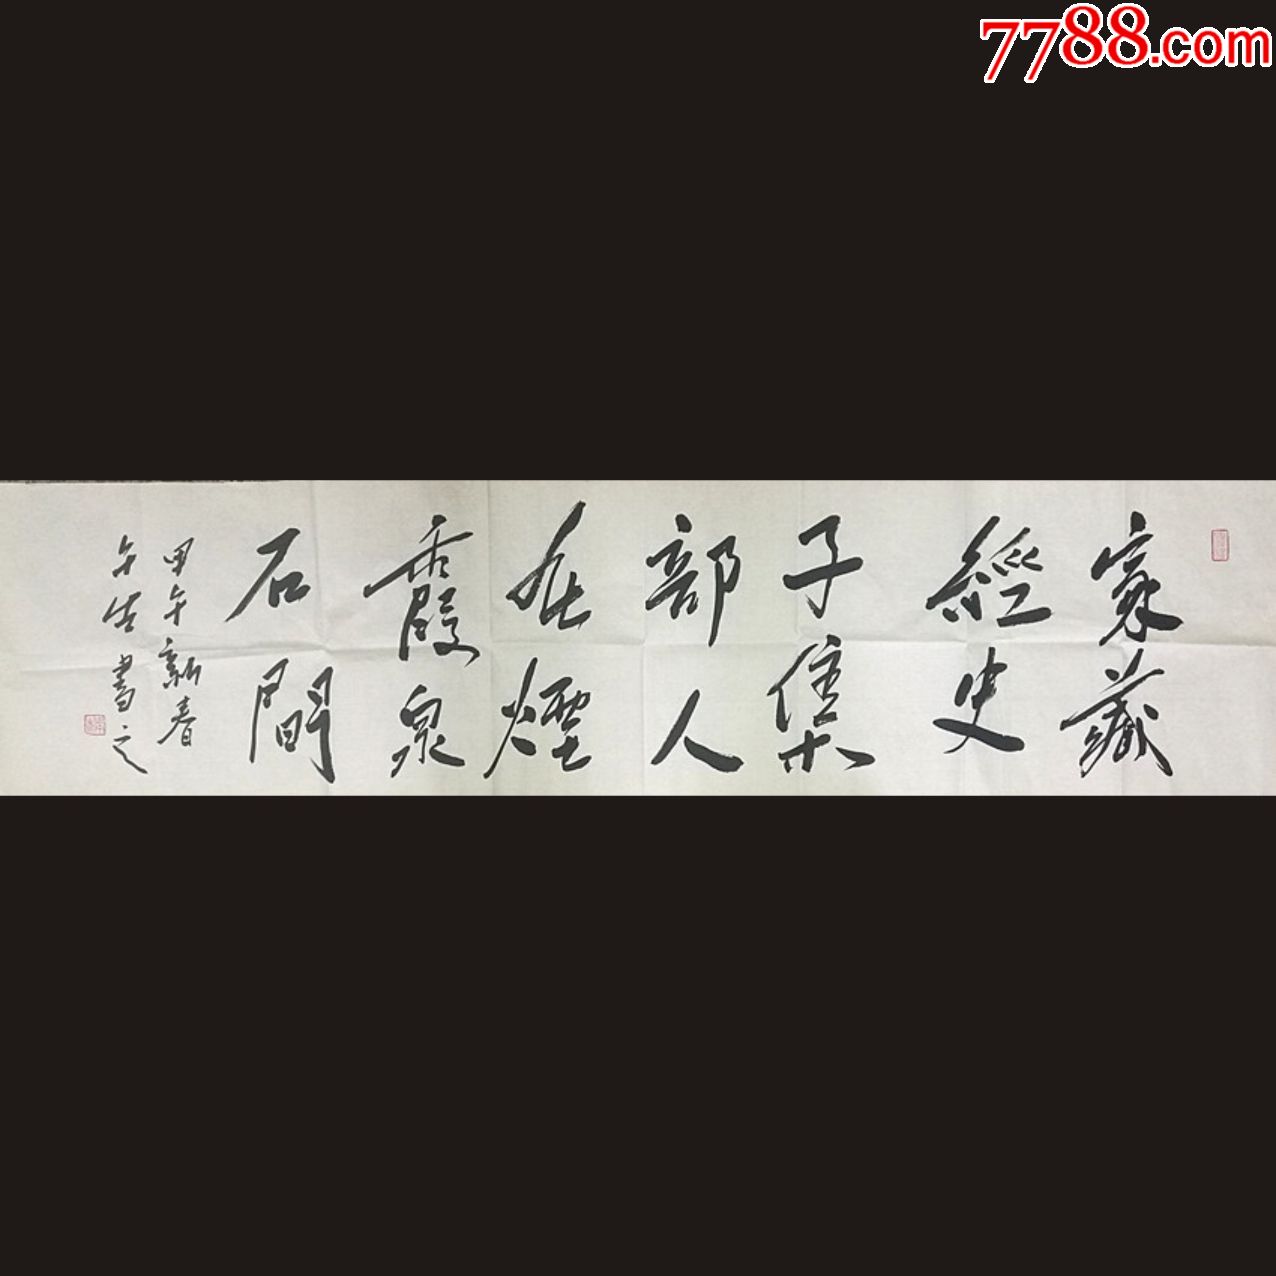 7788.com
家藏
經史
子集
部人
在煙
霞泉
石間
甲午新春
午生書之